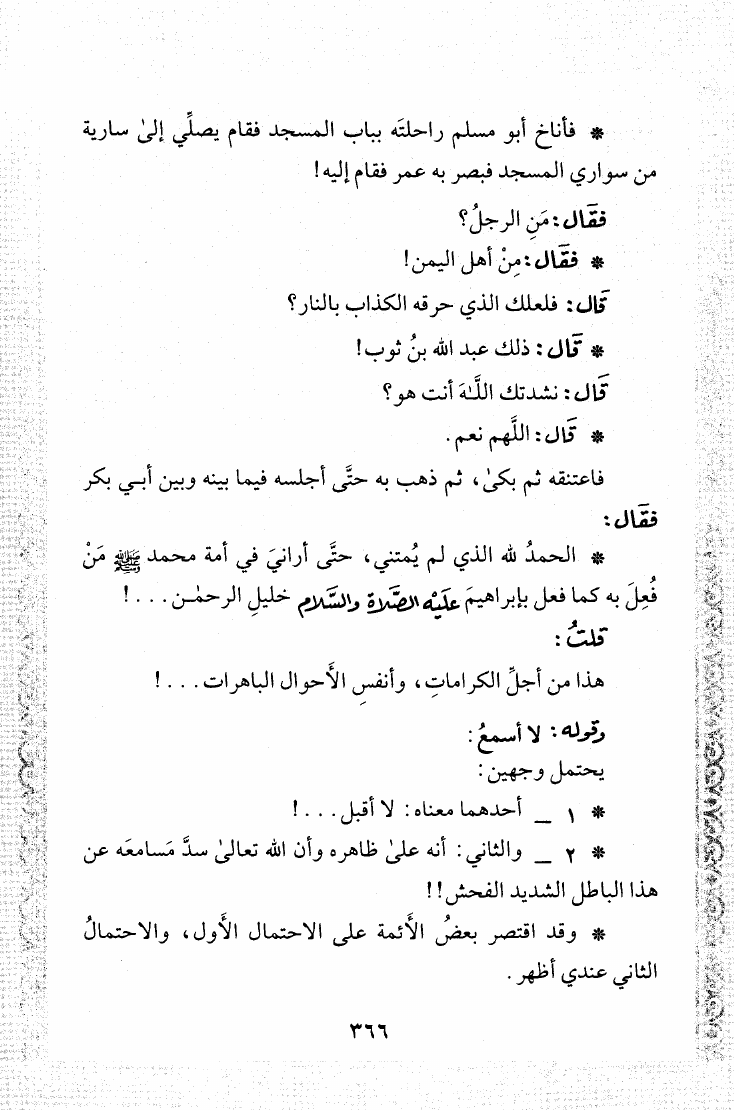 * فأناخ أبو مسلم راحلتَه بباب المسجد فقام يصلِّي إلىٰ سارية
من سواري المسجد فبصر به عمر فقام إليه!
فقَال: مَنِ الرجلُ؟
* فقَال: مِنْ أهل اليمن!
قَال: فلعلك الذي حرقه الكذاب بالنار؟
* قَال: ذلك عبد الله بنُ ثوب!
قَال: نشدتك اللَّهَ أنت هو؟
* قَال: اللَّهم نعم.
فاعتنقه ثم بكىٰ، ثم ذهب به حتَّى أجلسه فيما بينه وبين أبي بكر
فقَال:
* الحمدُ لله الذي لم يُمتني، حتَّى أرانيَ في أمة محمد ﷺ مَنْ
فُعِلَ به كما فعل بإبراهيمَ عليْه الصَّلاة والسَّلام خليلِ الرحمٰن...!
قلتُ:
هذا من أجلِّ الكراماتِ، وأنفسِ الأحوال الباهرات...!
وقوله: لا أسمعُ:
يحتمل وجهين:
* ١ _ أحدهما معناه: لا أقبل...!
* ٢ _ والثاني: أنه علىٰ ظاهره وأن الله تعالىٰ سدَّ مَسامعَه عن
هذا الباطل الشديد الفحش!!
* وقد اقتصر بعضُ الأئمة على الاحتمال الأول، والاحتمالُ
الثاني عندي أظهر.
٣٦٦